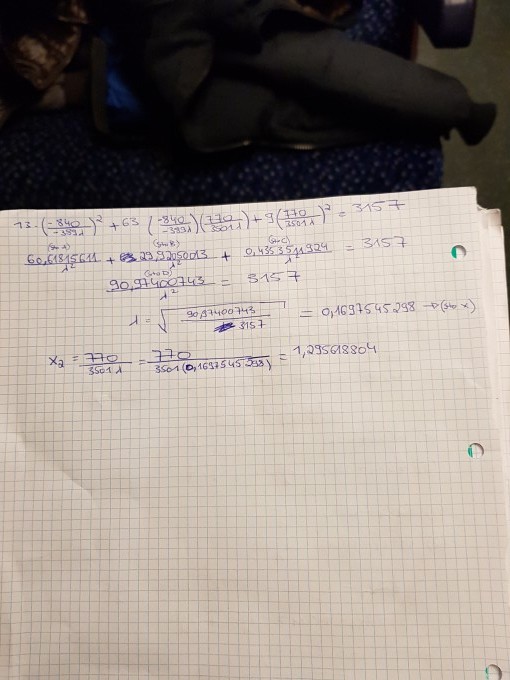 13·(-840/-389λ)² + 63 (-840/-389λ)(770/3501λ) + 9(770/3501λ)² = 3157
(sto A) (sto B) (sto C)
60,61815611/λ² + 29,92050013/λ² + 0,4353511924/λ² = 3157
(sto D)
90,97400743/λ² = 3157
λ = √(90,97400743/3157) = 0,1697545298 → (sto x)
x₂ = 770/3501λ = 770/3501(0,1697545298) = 1,295618804